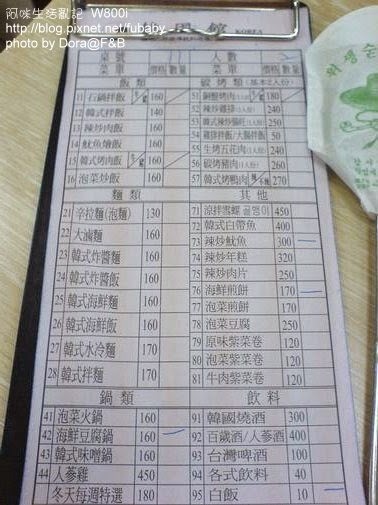 阿咪生活亂記 W800i
http://blog.pixnet.net/fubaby
photo by Dora@F&B
韓 KOREA
桌號 11 人數 2
菜單 價格 數量 菜單 價格 數量
飯類 碳烤類(基本2人份)
11 石鍋拌飯 160 51 銅盤烤肉 180
12 韓式拌飯 140 52 辣炒雞排 240
13 辣炒肉飯 160 53
14 魷魚燴飯 160 54
15 韓式烤肉飯 160 55 生烤五花肉 240
16 泡菜炒飯 160 56 碳烤豬肉 260
57 韓式烤鴨肉 270
麵類 其他
21 辛拉麵(泡麵) 130 71 涼拌雪螺 골뱅이 450
22 大滷麵 160 72 韓式白帶魚 400
23 韓式炸醬麵 160 73 辣炒魷魚 300
24 韓式炸醬飯 160 74 辣炒年糕 320
25 韓式海鮮麵 160 75 辣炒肉片 250
26 韓式海鮮飯 160 76 海鮮煎餅 170
27 韓式水冷麵 170 77 泡菜煎餅 170
28 韓式拌麵 170 78 泡菜豆腐 250
79 原味紫菜卷 120
80 泡菜紫菜卷 120
81 牛肉紫菜卷 120
鍋類 飲料
41 泡菜火鍋 160 91 韓國燒酒 300
42 海鮮豆腐鍋 160 92 百歲酒/人參酒 400
43 韓式味噌鍋 160 93 台灣啤酒 100
44 人參雞 450 94 各式飲料 40
冬天每週特選 180 95 白飯 10
위생순